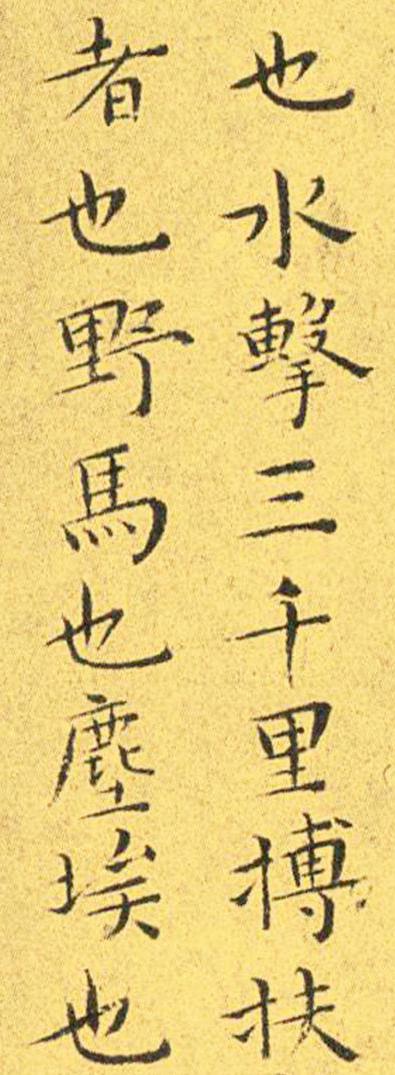 也水擊三千里搏扶
者也野馬也塵埃也